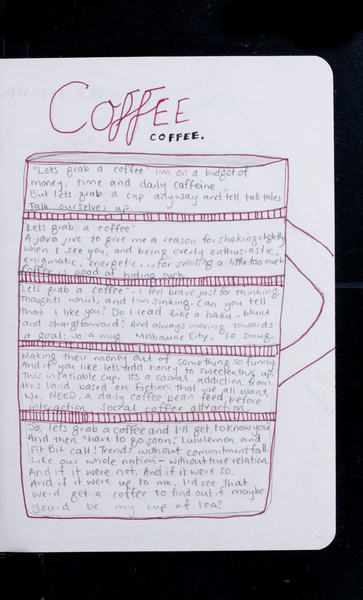 Coffee
COFFEE.
"Lets grab a coffee" i'm on a budget of
money, time and daily caffeine
But lets grab a cup anyway and tell tall tales
Talk ourselves up.
"Lets grab a coffee"
A java jive to give me a reason for shaking slightly
when I see you, and being overly enthusiastic,
enigmatic, energetic... for smiling a little too much
coffee is good at hiding such
Lets grab a coffee". I feel brave just for thinking.
Thoughts whirl, and i'm sinking. Can you tell
that I like you? Do I read like a haiku - blunt
and straightforward? And always moving towards
a goal: so a mug. Melbourne City, so smug.
Making their money out of something so funny
And if you like lets add honey to sweeten up
this inflatable cup. Its a social addiction from
this land based on fiction that we all want,
No, NEED, a daily coffee bean feed, before
interaction social coffee attraction.
So, lets grab a coffee and I'll get to know you
And then "have to go, soon". Lululemon and
Fit Bit call! Trends without commitment fall.
Like our whole nation - without true relation
And if it were not. And if it were so.
And if it were up to me, I'd see that
we'd get a coffee to find out if maybe
you'd be my cup of tea?